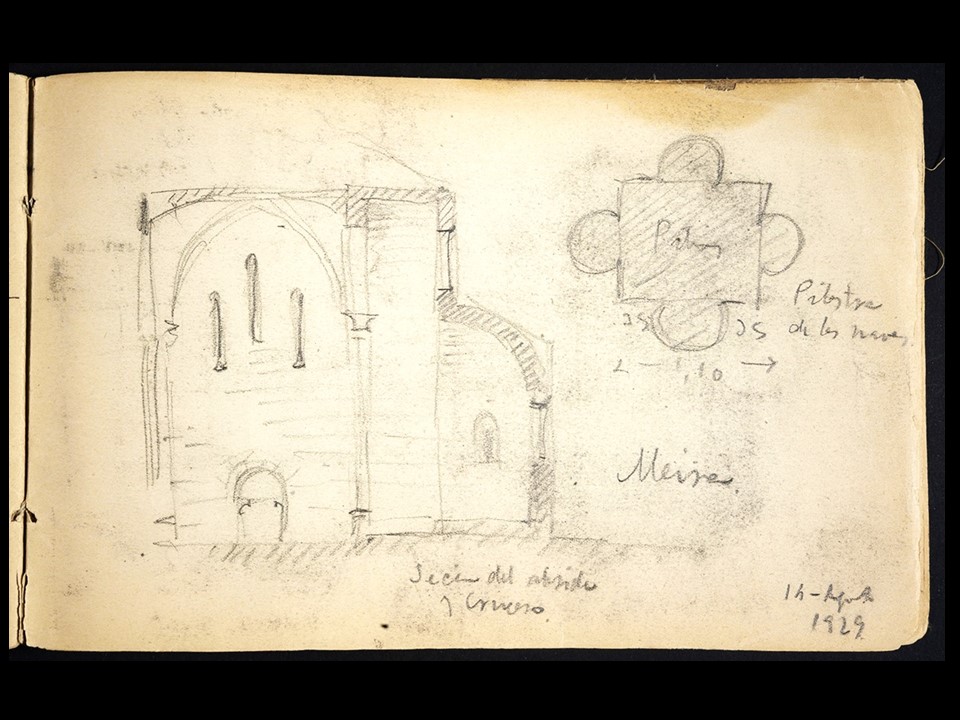 Pilastra
de las naves
35
35
1,10
Meira
Secion del abside
y Crucero
14-Agosto
1929